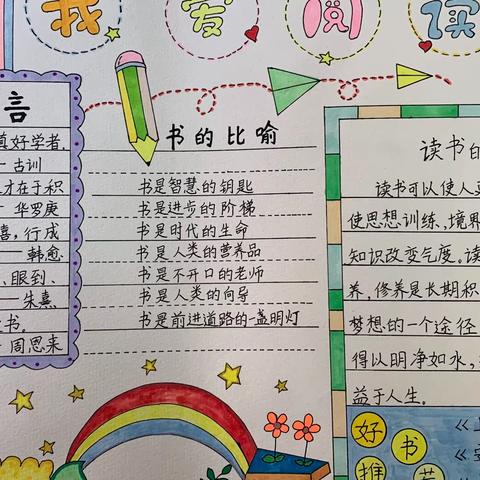 我爱阅读
言
真好学者.
古训
才在于积
华罗庚
喜,行成
韩愈
、眼到、
朱熹
书.
周恩来
书的比喻
书是智慧的钥匙
书是进步的阶梯
书是时代的生命
书是人类的营养品
书是不开口的老师
书是人类的向导
书是前进道路的一盏明灯
读书的
读书可以使人
使思想训练,境界
知识改变气度。读
养,修养是长期积
梦想的一个途径
得以明净如水,
益于人生.
好书
推荐